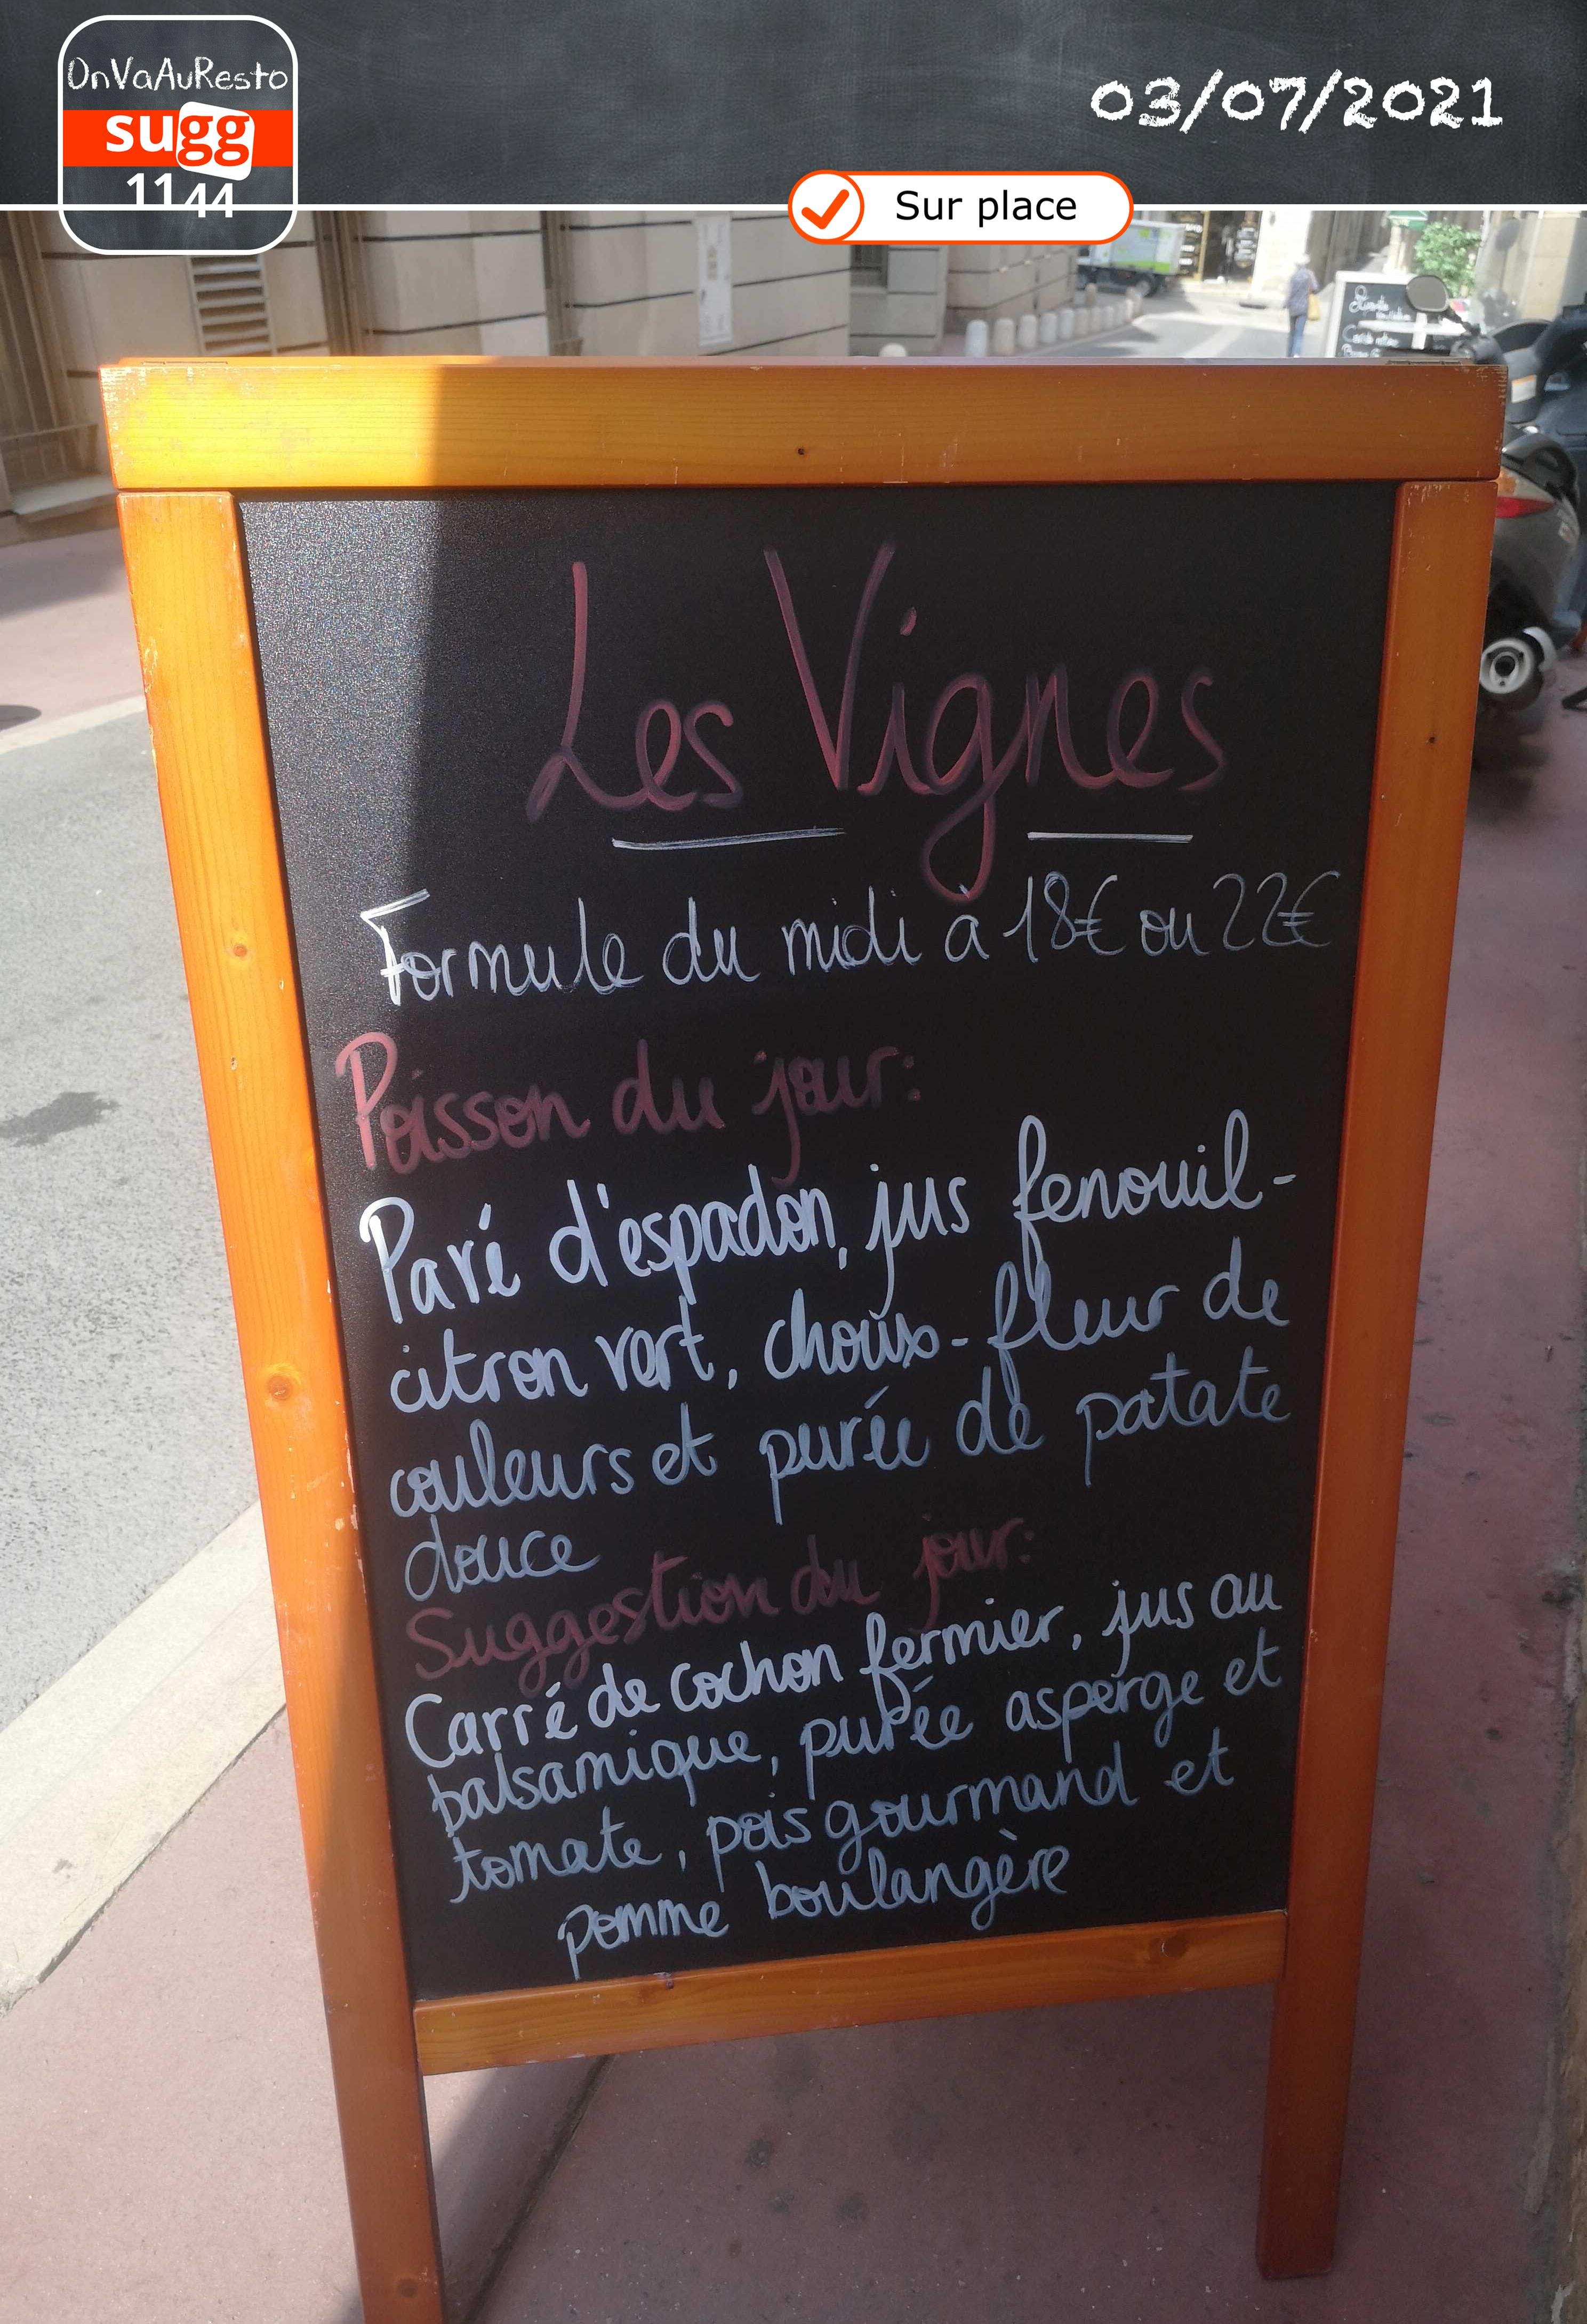 OnVaAuResto
sugg
1144
03/07/2021
Sur place
Les Vignes
Formule du midi à 18€ ou 22€
Poisson du jour:
Pavé d'espadon, jus fenouil-
citron vert, choux-fleur de
couleurs et purée de patate
douce
Suggestion du jour:
Carré de cochon fermier, jus au
balsamique, purée asperge et
tomate, pois gourmand et
pomme boulangère